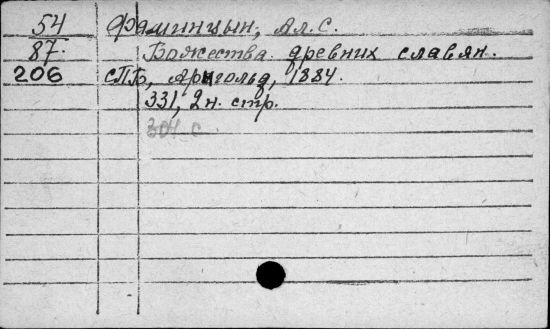 54 Фаминцын, Ал. С.
87. Божества древних славян.
206 СПБ, Арнгольд, 1884.
331, 2 н. стр.
304 с.